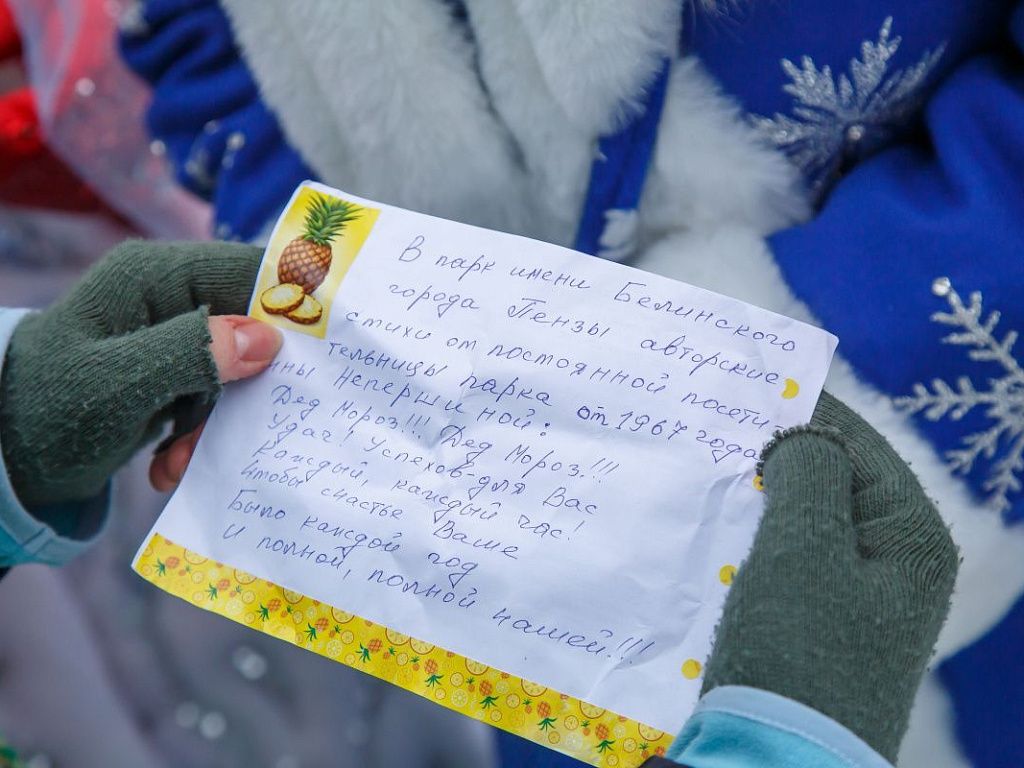 В парк имени Белинского
города Пензы авторские
стихи от постоянной посети-
тельницы парка от 1967 года
нны Непершиной:
Дед Мороз!!! Дед Мороз!!!
Удач! Успехов-для Вас
Каждый, каждый час!
Чтобы счастье Ваше
Было каждой год
И полной, полной чашей!!!